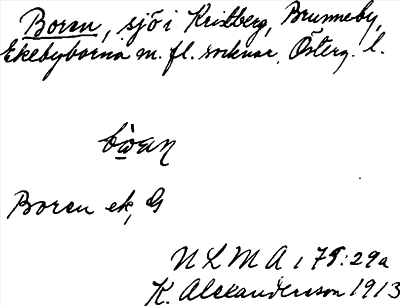 Boren, sjö i Kristberg, Brunneby,
Ekebyborna m. fl. socknar, Österg. l.
bòɷn
Boren ek, G
N L M A 179:29a
K. Alexandersson 1913